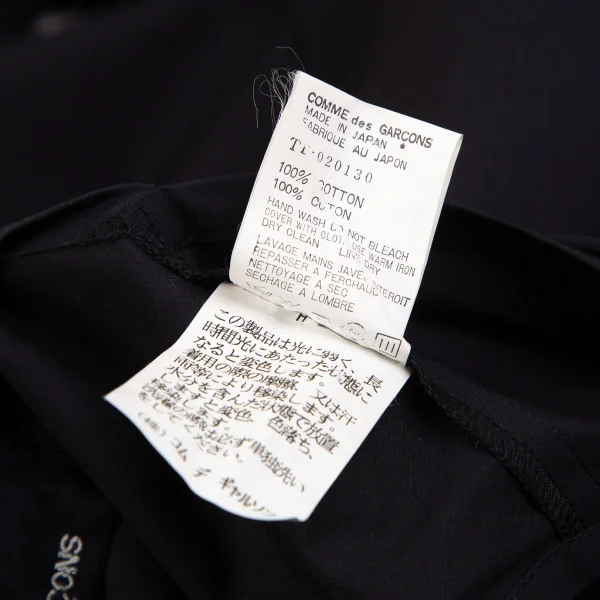 COMME des GARCONS
MADE IN JAPAN ★
FABRIQUE AU JAPON
020130
100% COTTON
100% COTON
HAND WASH DO NOT BLEACH
COVER WITH CLOT USE WARM IRON
DRY CLEAN LINE DRY
LAVAGE MAINS JAVEL
REPASSER A FER CHAUD
NETTOYAGE A SEC
SECHAGE A LOMBRE
この製品は光に弱く、長
時間光にあたった状態に
なると変色します。又は汗
着用の際の摩擦
雨等により移染します。
水分を含んだ状態で放置
しますと変色 色落ち、
必ず単独洗い
してください。
コム デ ギャルソン
CONS